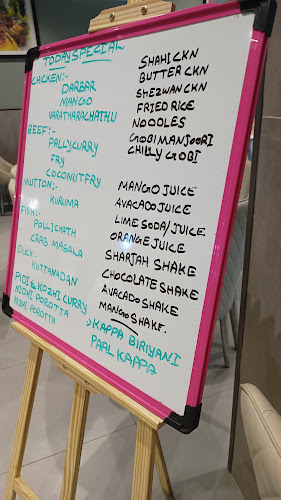 TODAY SPECIAL
CHICKEN:-
DARBAR
MANGO
VARATHARACHATHU
BEEF:-
PALLYCURRY
FRY
COCONUTFRY
MUTTON:-
KURUMA
FISH:-
POLLICHATH
CRAB MASALA
DUCK:-
KUTTANADAN
PIDI & KOZHI CURRY
NIDHI POROTTA
KIZHI POROTTA
SHAHI CKN
BUTTER CKN
SHEZWAN CKN
FRIED RICE
NOODLES
GOBI MANJOORI
CHILLY GOBI
MANGO JUICE
AVACADO JUICE
LIME SODA/JUICE
ORANGE JUICE
SHARJAH SHAKE
CHOCOLATE SHAKE
AVACADO SHAKE
MANGO SHAKE.
KAPPA BIRIYANI
PAAL KAPPA